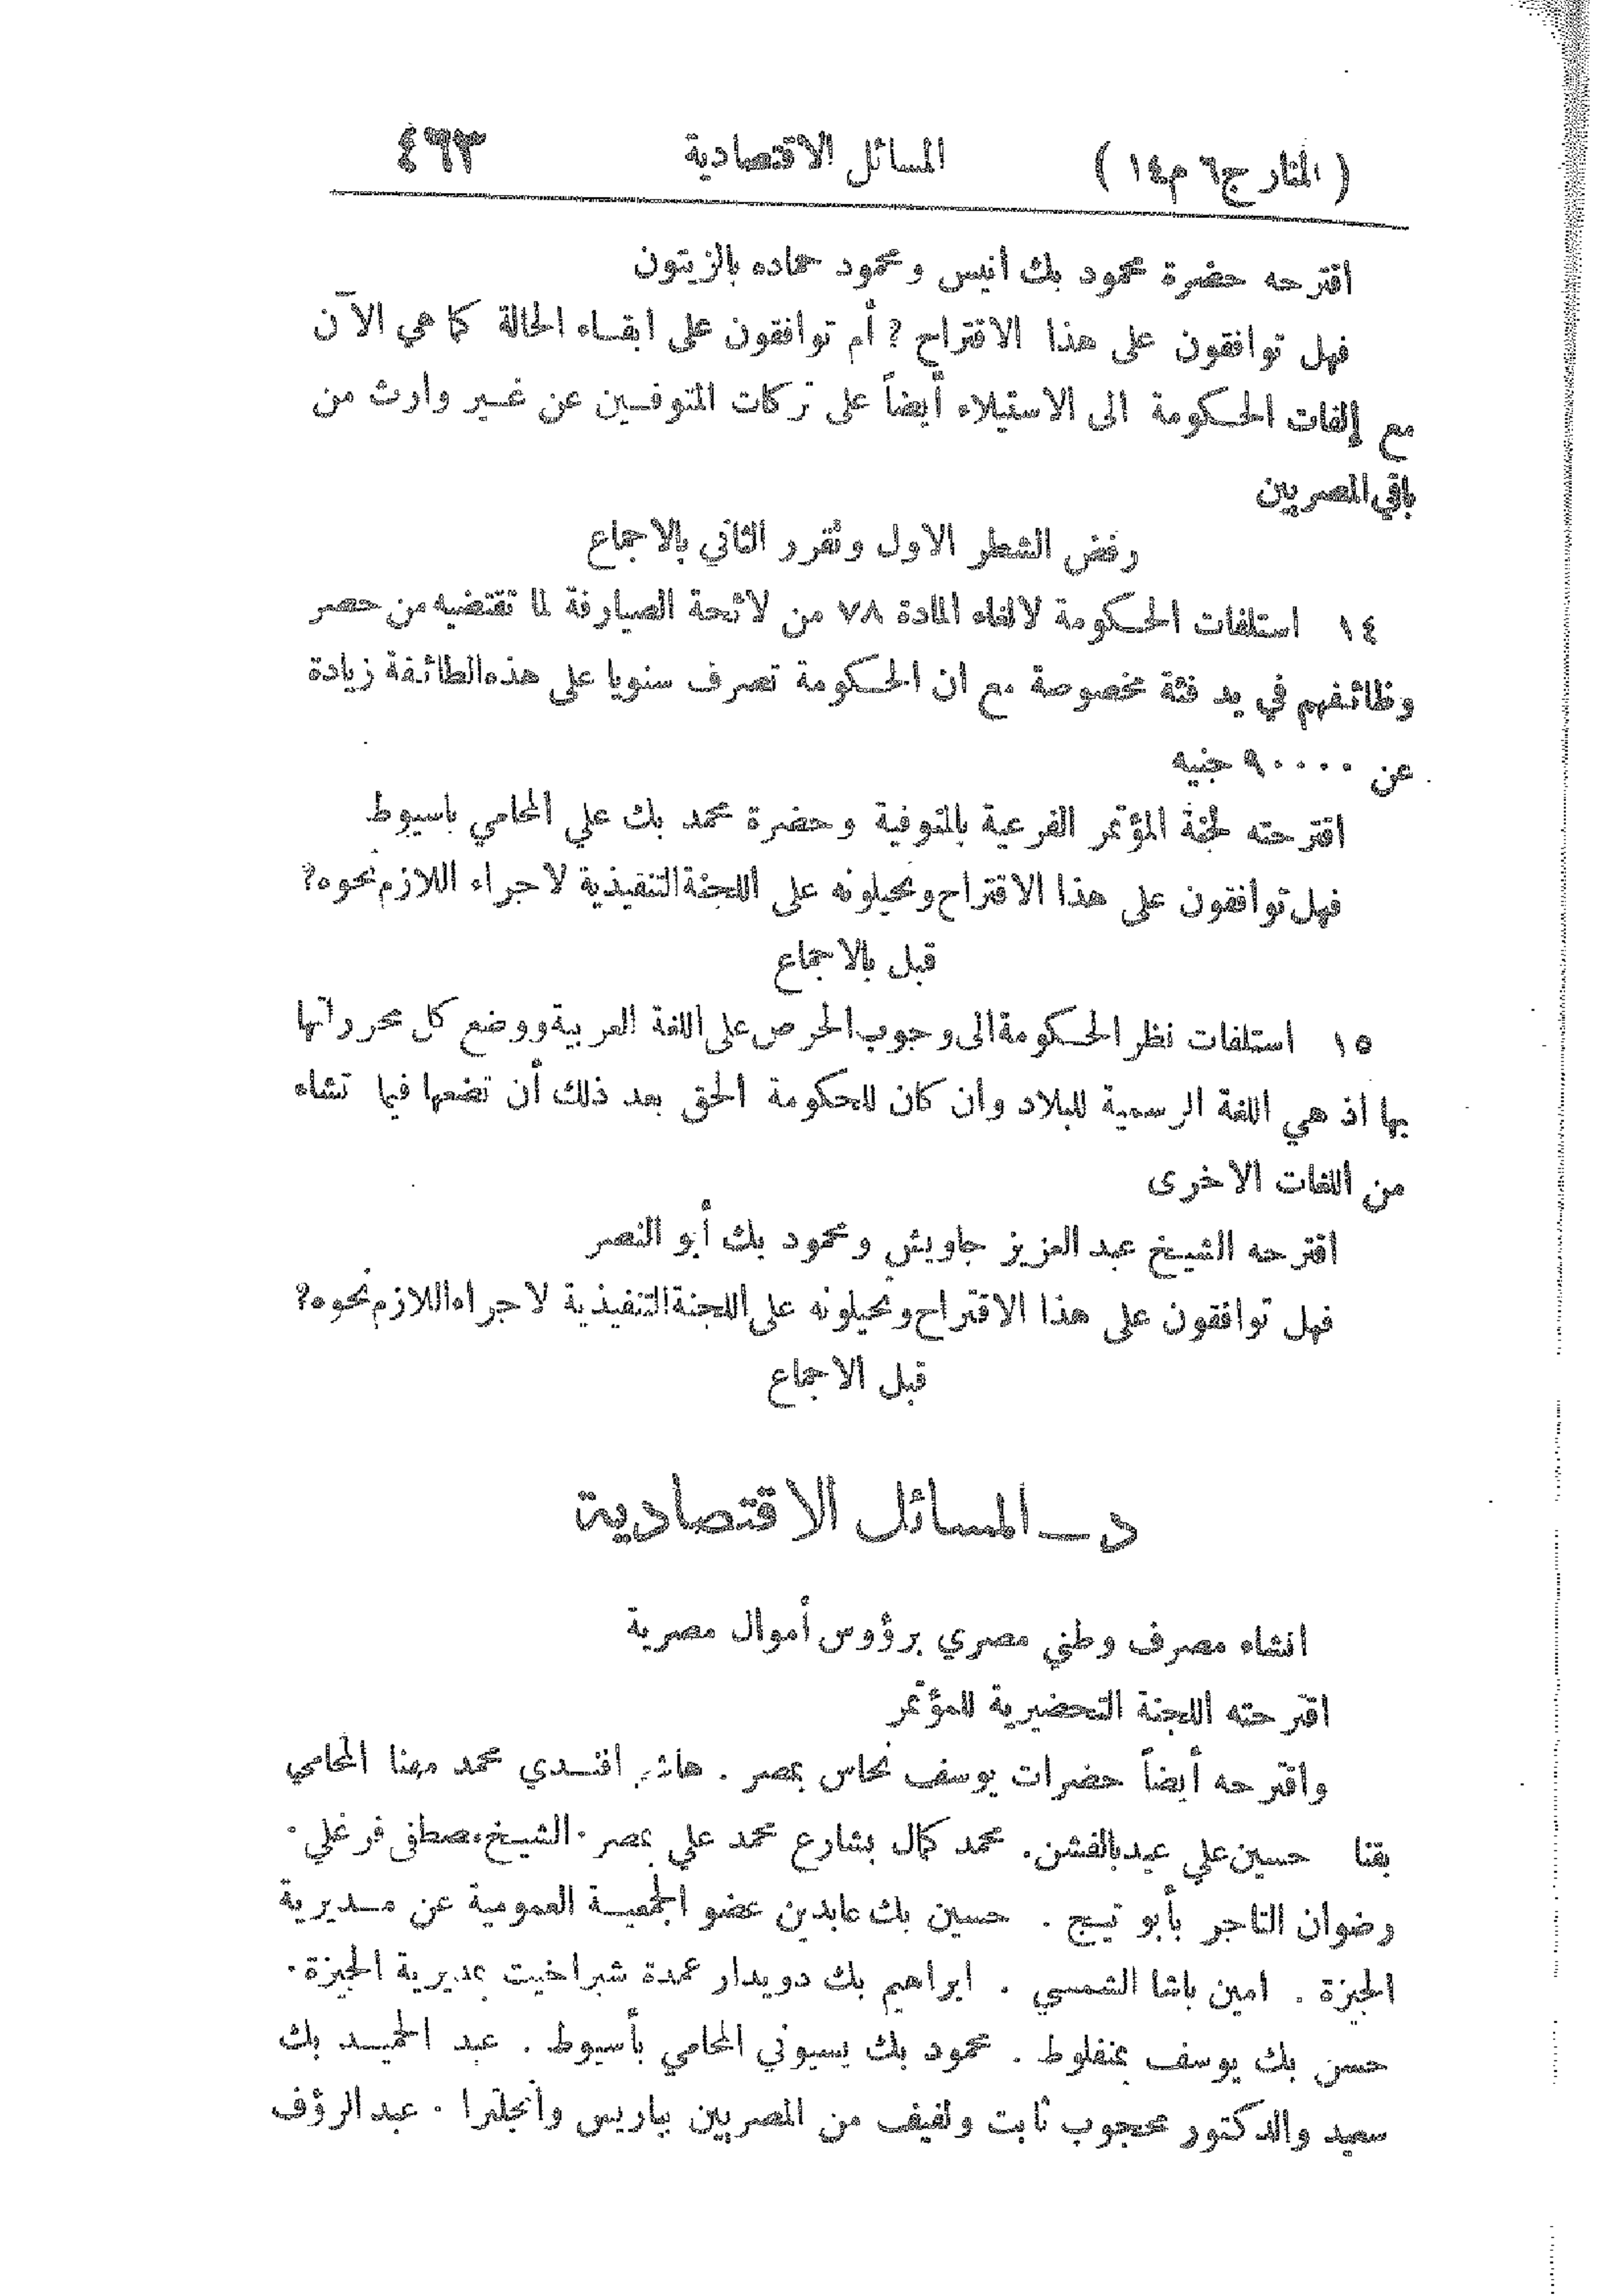 ( المنار ج٦ م١٤ ) المسائل الاقتصادية ٤٦٣
اقترحه حضرة محمود بك أنيس ومحمود حماده بالزيتون
فهل توافقون على هذا الاقتراح ? أم توافقون على ابقاء الحالة كما هي الآن
مع إلفات الحكومة الى الاستيلاء أيضاً على تركات المتوفين عن غير وارث من
باقي المصريين
رفض الشطر الاول وتقرر الثاني بالاجماع
١٤ استلفات الحكومة لالغاء المادة ٧٨ من لائحة الصيارفة لما تقتضيه من حصر
وظائفهم في يد فئة مخصوصة مع ان الحكومة تصرف سنويا على هذه الطائفة زيادة
عن ٩٠٠٠٠ جنيه
اقترحته لجنة المؤتمر الفرعية بالمنوفية وحضرة محمد بك علي المحامي باسيوط
فهل توافقون على هذا الاقتراح وتحيلونه على اللجنة التنفيذية لاجراء اللازم نحوه؟
قبل بالاجماع
١٥ استلفات نظر الحكومة الى وجوب الحرص على اللغة العربية ووضع كل محرراتها
بها اذ هي اللغة الرسمية للبلاد وان كان للحكومة الحق بعد ذلك أن تضعها فيما تشاء
من اللغات الاخرى
اقترحه الشيخ عبد العزيز جاويش ومحمود بك أبو النصر
فهل توافقون على هذا الاقتراح وتحيلونه على اللجنة التنفيذية لاجراء اللازم نحوه؟
قبل الاجماع
د ــ المسائل الاقتصادية
انشاء مصرف وطني مصري برؤوس أموال مصرية
اقترحته اللجنة التحضيرية للمؤتمر
واقترحه أيضاً حضرات يوسف نحاس بمصر . هاشم افندي محمد مهنا المحامي
بقنا حسين علي عيد بالفشن. محمد كمال بشارع محمد علي بمصر . الشيخ مصطفى فرغلي .
رضوان التاجر بأبو تيج . حسين بك عابدين عضو الجمعية العمومية عن مديرية
الجيزة . امين باشا الشمسي . ابراهيم بك دويدار عمدة شبراخيت بمديرية الجيزة .
حسن بك يوسف بمنفلوط . محمود بك بسيوني المحامي بأسيوط . عبد الحميد بك
سعيد والدكتور محجوب ثابت ولفيف من المصريين بباريس وأنجلترا . عبد الرؤف